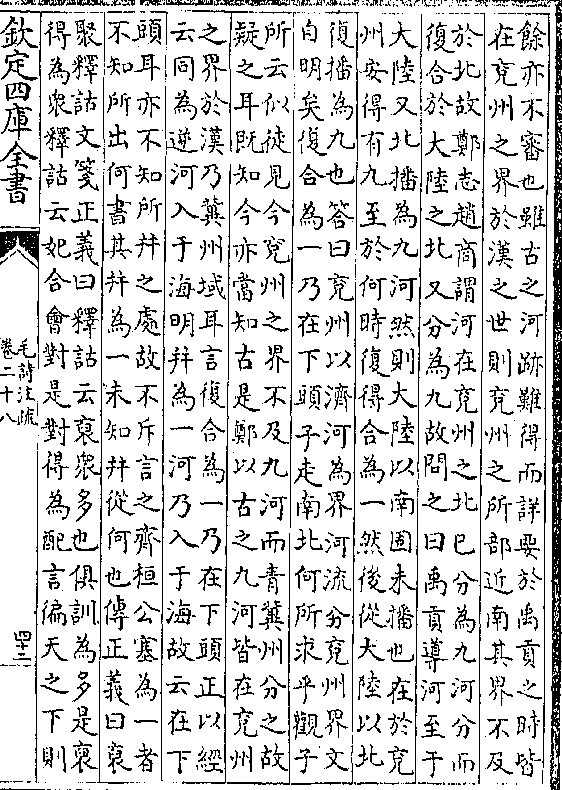 餘亦不審也雖古之河跡難得而詳要於禹貢之時皆
在兖州之界於漢之世則兖州之所部近南其界不及
於北故鄭志趙商謂河在兖州之北已分為九河分而
復合於大陸之北又分為九故問之曰禹貢導河至于
大陸又北播為九河然則大陸以南固未播也在於兖
州安得有九至於何時復得合為一然後從大陸以北
復播為九也答曰兖州以濟河為界河流分兖州界文
自明矣復合為一乃在下頭子走南北何所求乎觀子
所云似徒見今兖州之界不及九河而青冀州分之故
疑之耳既知今亦當知古是鄭以古之九河皆在兖州
之界於漢乃冀州域耳言復合為一乃在下頭正以經
云同為逆河入于海明并為一河乃入于海故云在下
頭耳亦不知所并之處故不斥言之齊桓公塞為一者
不知所出何書其并為一未知并從何也傳正義曰裒
聚釋詁文箋正義曰釋詁云裒衆多也俱訓為多是裒
得為衆釋詁云妃合會對是對得為配言徧天之下則
欽定四庫全書
毛詩注疏
卷二十八
四十二